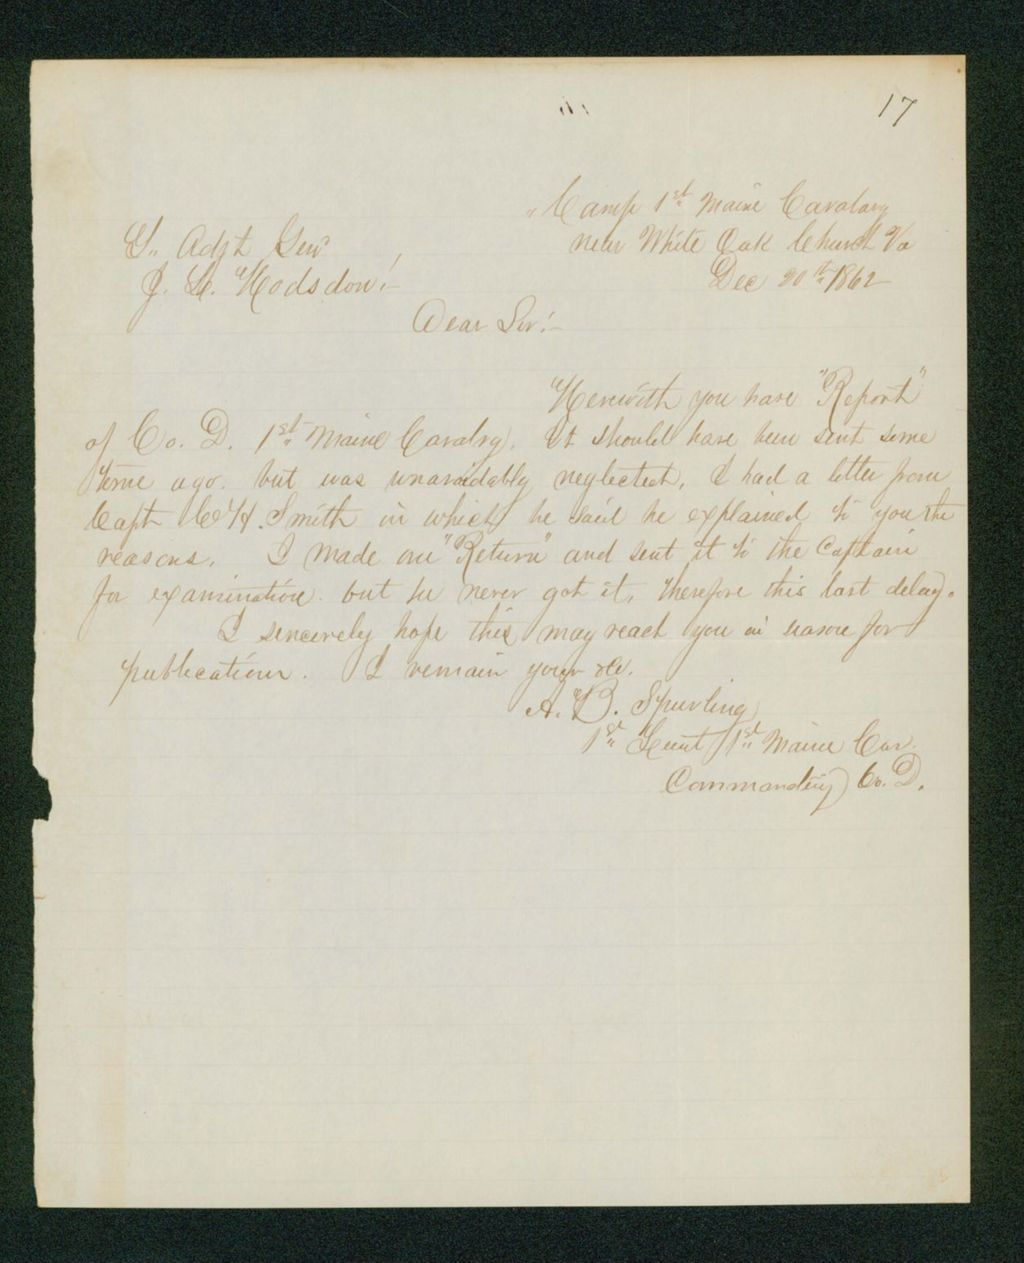 17
Camp 1st Maine Cavalary
near White Oak Church Va
Dec 20th 1862
Adjt Gen
J. L. Hodsdon!
Dear Sir!
Herewith you have "Report"
of Co. D. 1st Maine Cavalry. It should have been sent some
time ago. but was unavoidably neglected. I had a letter from
Capt C H. Smith in which he said he explained to you the
reasons. I made one "Return" and sent it to the Captain
for examination. but he never got it, therefore this last delay.
I sincerely hope this may reach you in season for
publication. I remain your &c.
A. B. Spurling
1st Lieut 1st Maine Cav.
Commanding Co. D.